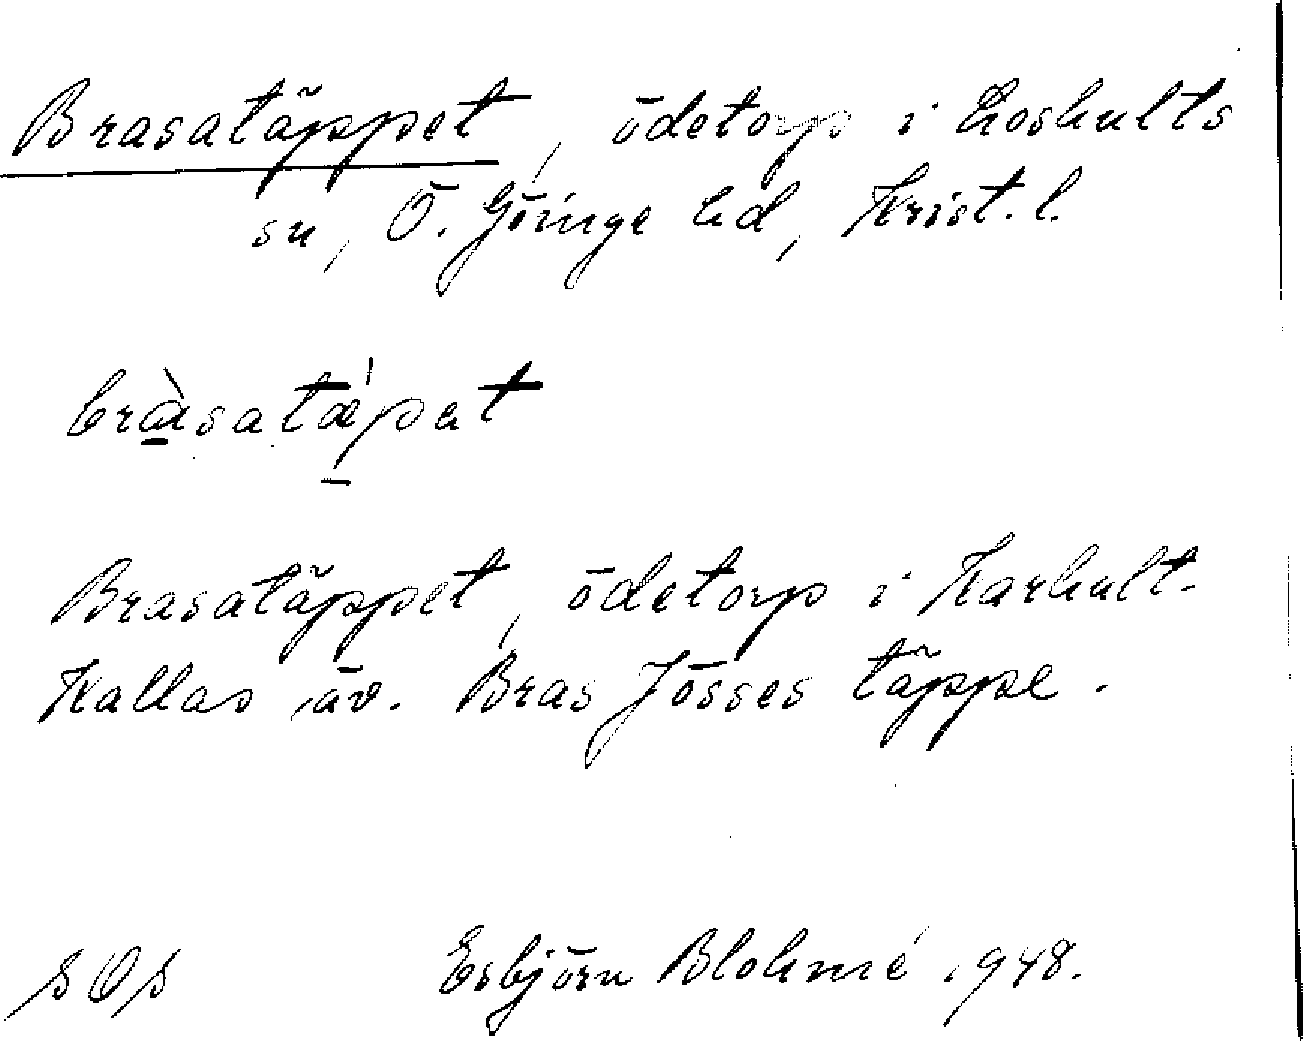 Brasatäppet, ödetorp i Loshults
sn, Ö. Göinge hd, Krist. l.
bràsatæ̀pat
Brasatäppet, ödetorp i Karhult.
Kallas äv. Bras Jösses täppe.
sOs Esbjörn Blohmé 1948.